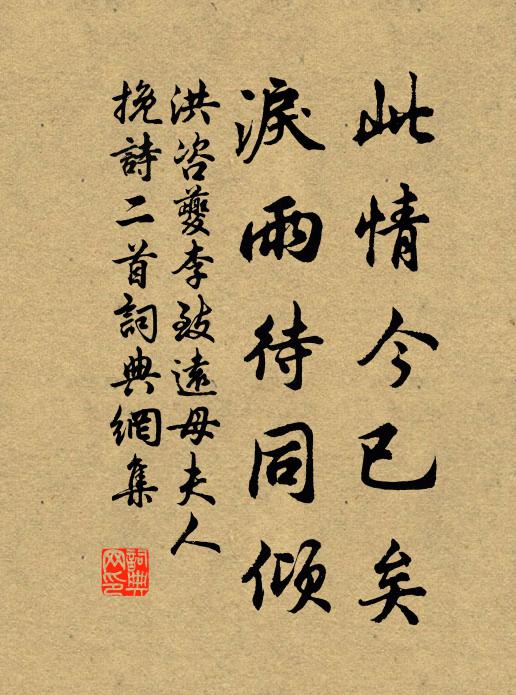 此情今已矣
淚雨待同傾
洪咨夔李致遠母夫人
挽詩二首詞典網集
詞典網印